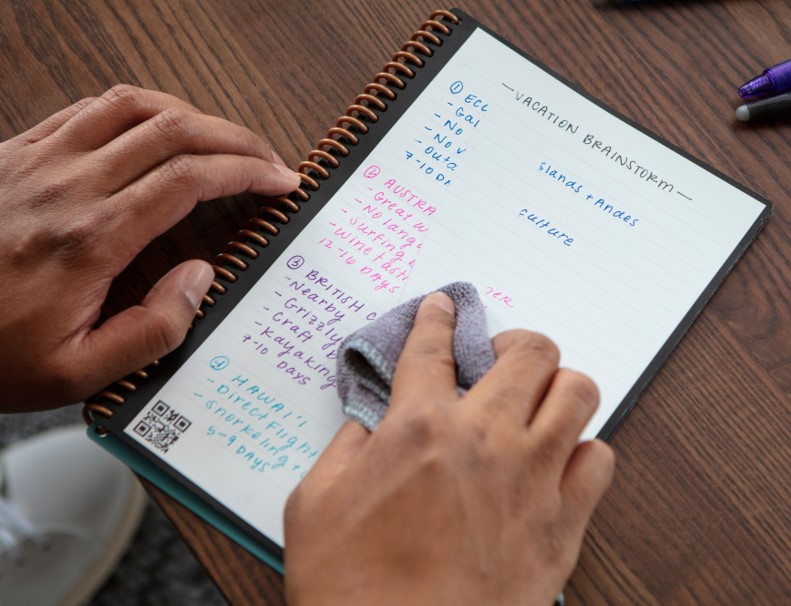 —VACATION BRAINSTORM—
① ECU
- Gal
- No
- No v
- Outd
7-10 DA
slands + Andes
culture
② AUSTRA
- Great w
- No lang
- Surfing
- Wine tasti
12-16 DAYS
③ BRITISH C
- Nearby
- Grizzly
- Craft b
- Kayaking
7-10 DAYS
④ HAWAI'I
- Direct Flight
- Snorkeling +
5-9 DAYS